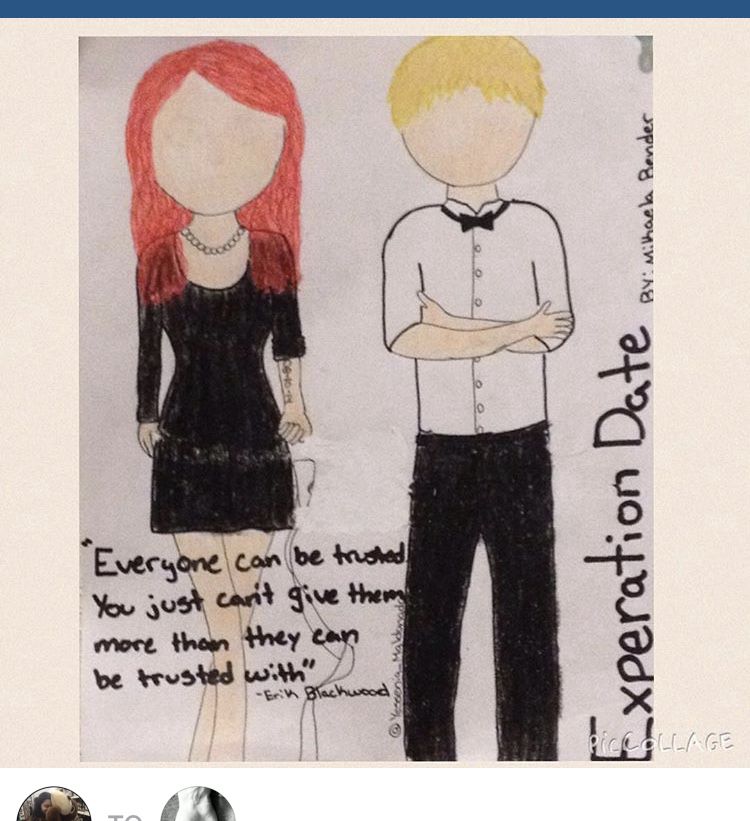 "Everyone can be trusted
You just can't give them
more than they can
be trusted with"
-Erik Blackwood
Experation Date
BY: Mihaela Bender
@Yessenia_Maldonado
PIC COLLAGE
TO